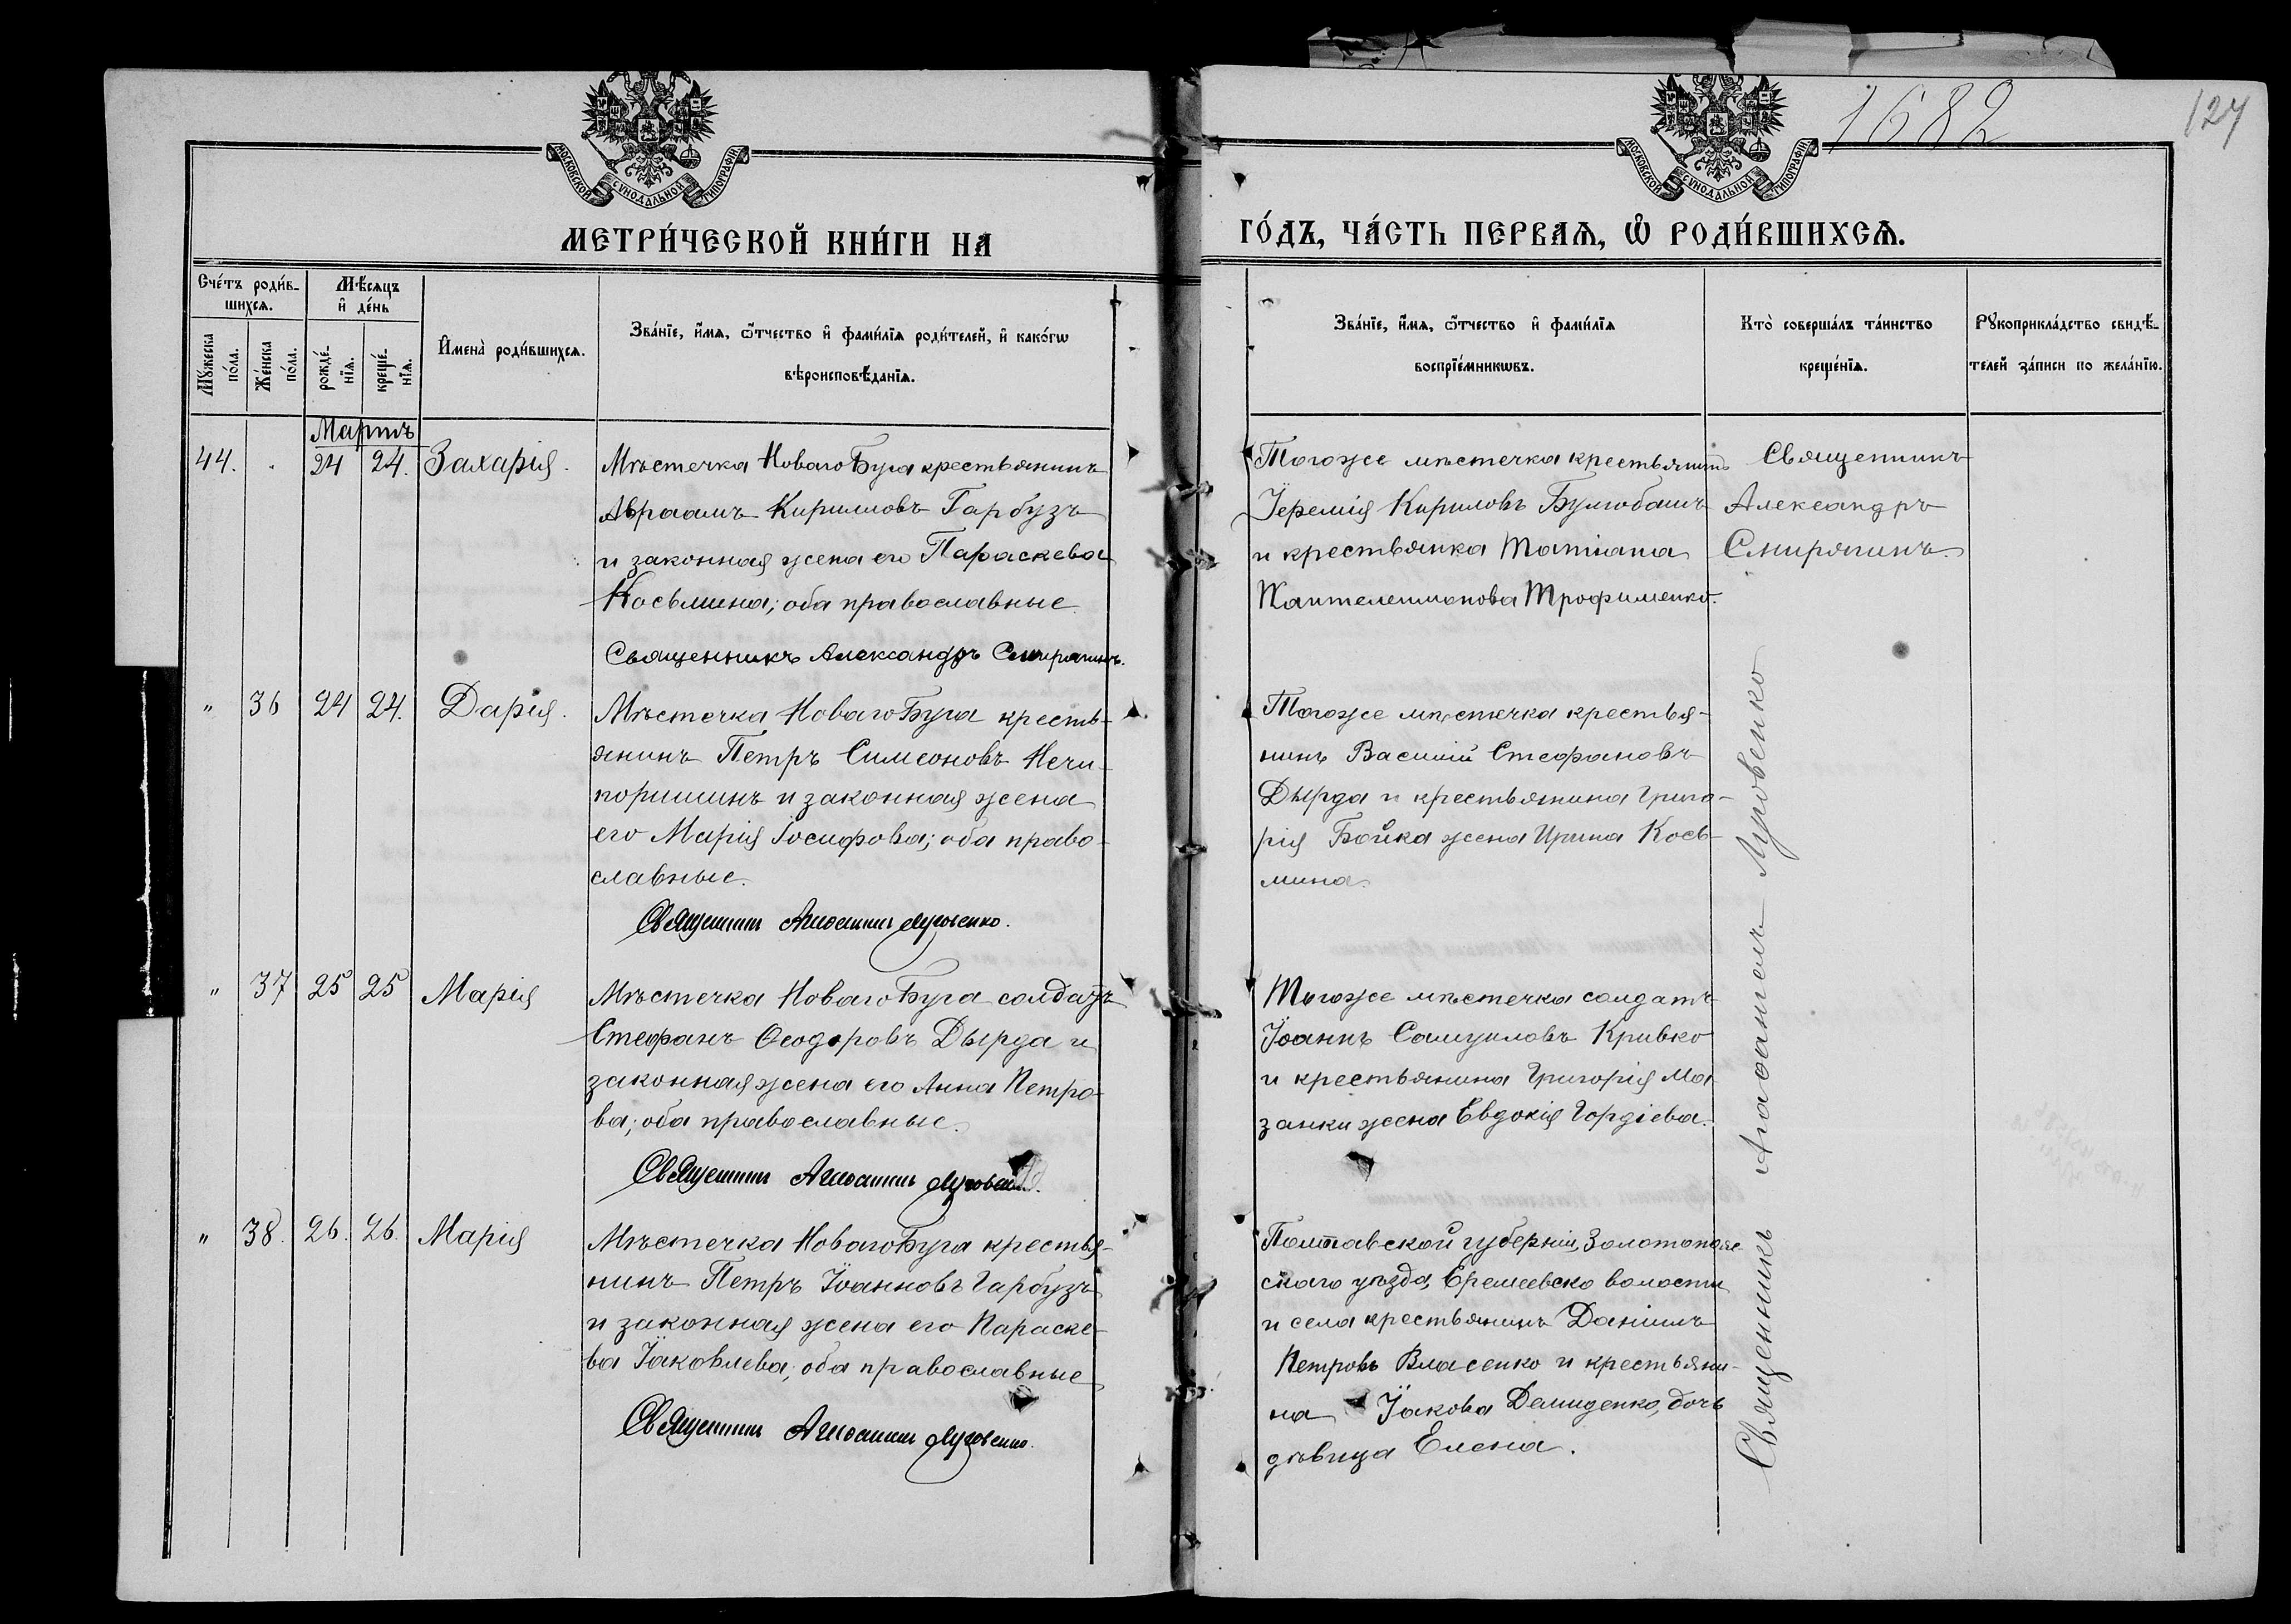 1682
127
МОСКОВСКОЙ СѴНОДАЛЬНОЙ ТИПОГРАФІИ
МОСКОВСКОЙ СѴНОДАЛЬНОЙ ТИПОГРАФІИ
МЕТРИ́ЧЕСКОЙ КНИ́ГИ НА
ГО́ДЪ, ЧА́СТЬ ПЕРВАѦ, Ѡ҆ РОДИ́ВШИХСѦ.
Сче́тъ роди́в-
шихсѧ.
Мꙋ́жеска по́ла.
Же́нска по́ла.
Мѣ́сѧцъ
и҆ де́нь
рожде́-
нїѧ.
креще́-
нїѧ.
И҆мена̀ роди́вшихсѧ.
Зва́нїе, и҆́мѧ, ѻ҆́тчество и҆ фами́лїѧ роди́телей, и҆ како́гѡ
вѣроисповѣ́данїѧ.
Зва́нїе, и҆́мѧ, ѻ҆́тчество и҆ фами́лїѧ
воспрїе́мникѡвъ.
Кто̀ соверша́лъ та́инство
креще́нїѧ.
Рꙋкоприкла́дство свидѣ́-
телей за́писи по жела́нїю.
Мартъ
44. 24 24. Захарія.
Мѣстечка Новаго Буга крестьянинъ
Авраамъ Кирилловъ Гарбузъ
и законная жена его Параскева
Косьмина; оба православные.
Священникъ Александръ Смирягинъ.
Тогоже мѣстечка крестьянинъ
Іеремія Кириловъ
и крестьянка Татіана
Пантелеимонова Трофименко.
Священникъ
Александръ
Смирягинъ.
" 36 24 24. Дарія.
Мѣстечка Новаго Буга кресть-
янинъ Петръ Симеоновъ Нечи-
поришинъ и законная жена
его Марія Іосифова; оба право-
славные.
Священникъ Луговенко.
Тогоже мѣстечка крестья-
нинъ Василій Стефановъ
Дырда и крестьянина Григо-
рія Бойка жена Ирина Кось-
мина.
" 37 25 25 Марія
Мѣстечка Новаго Буга солдатъ
Стефанъ Ѳеодоровъ Дырда и
законная жена его Анна Петро-
ва; оба православные.
Священникъ Луговенко.
Тогоже мѣстечка солдатъ
Іоаннъ Самуиловъ Кривко
и крестьянина Григорія Ма-
занки жена Евдокія Гордіева.
" 38. 26. 26. Марія
Мѣстечка Новаго Буга крестья-
нинъ Петръ Іоанновъ Гарбузъ
и законная жена его Параске-
ва Іаковлева; оба православные
Священникъ Луговенко.
Полтавской губерніи, Золотонош-
скаго уѣзда, Еремеевско волости
и села крестьянинъ Даніилъ
Петровъ Власенко и крестьяни-
на Іакова Демиденко, дочь
дѣвица Елена.
Священникъ Луговенко